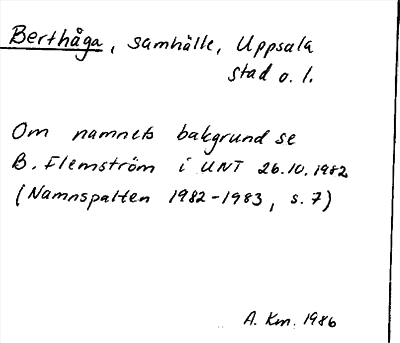 Berthåga, samhälle, Uppsala
stad o. l.
Om namnets bakgrund se
B. Flemström i UNT 26.10.1982
(Namnspalten 1982-1983, s. 7)
A. Km. 1986